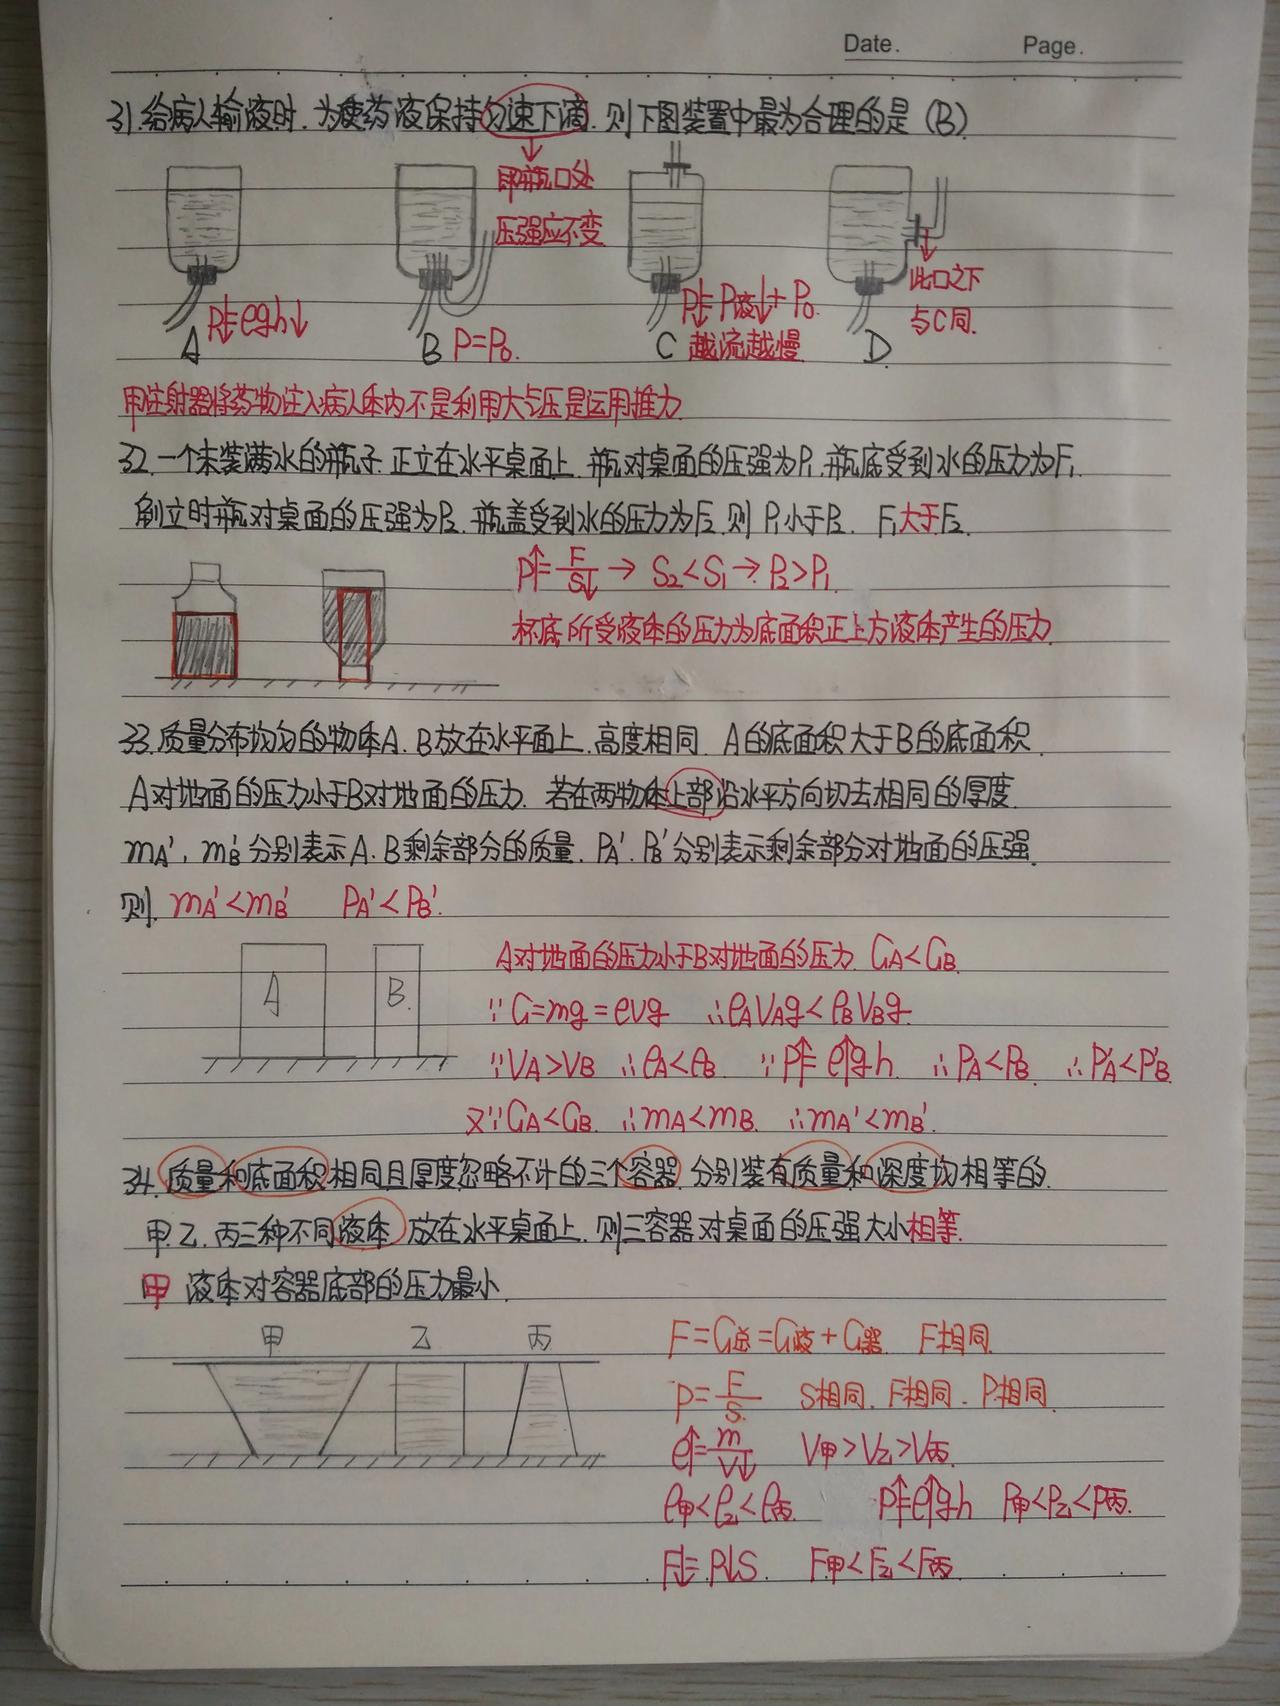 Date. Page.
31.给病人输液时.为使药液保持匀速下滴.则下图装置中最为合理的是(B)
即瓶口处
压强应不变
此口之下
与C同.
P↓=ρgh↓
P↓=P液↓+P₀.
A B P=P₀. C 越流越慢 D
甲注射器将药物注入病人体内不是利用大气压是运用推力
32.一个未装满水的瓶子.正立在水平桌面上.瓶对桌面的压强为P₁.瓶底受到水的压力为F₁
倒立时瓶对桌面的压强为P₂.瓶盖受到水的压力为F₂.则P₁小于P₂. F₁大于F₂.
P↑=F/S↓→S₂<S₁→P₂>P₁.
杯底所受液体的压力为底面积正上方液体产生的压力
33.质量分布均匀的物体A.B放在水平面上.高度相同.A的底面积大于B的底面积.
A对地面的压力小于B对地面的压力.若在两物体上部沿水平方向切去相同的厚度.
mA′,mB′分别表示A.B剩余部分的质量.PA′.PB′分别表示剩余部分对地面的压强.
则.mA′<mB′ PA′<PB′.
A B.
A对地面的压力小于B对地面的压力.GA<GB.
∵G=mg=ρvg ∴ρAVAg<ρBVBg.
∵VA>VB ∴ρA<ρB ∵P↑=ρ↑gh. ∴PA<PB. ∴P′A<P′B.
又∵GA<GB. ∴mA<mB. ∴mA′<mB′.
34.质量和底面积相同且厚度忽略不计的三个容器.分别装有质量和深度均相等的.
甲.乙.丙三种不同液体.放在水平桌面上.则三容器对桌面的压强大小相等.
甲 液体对容器底部的压力最小.
甲 乙 丙
F=G总=G液+G器. F相同.
P=F/S. S相同.F相同.P相同.
ρ↑=m/V↓ V甲>V乙>V丙.
ρ甲<ρ乙<ρ丙. P↑=ρ↑gh P甲<P乙<P丙.
F↓=P↓S. F甲<F乙<F丙.